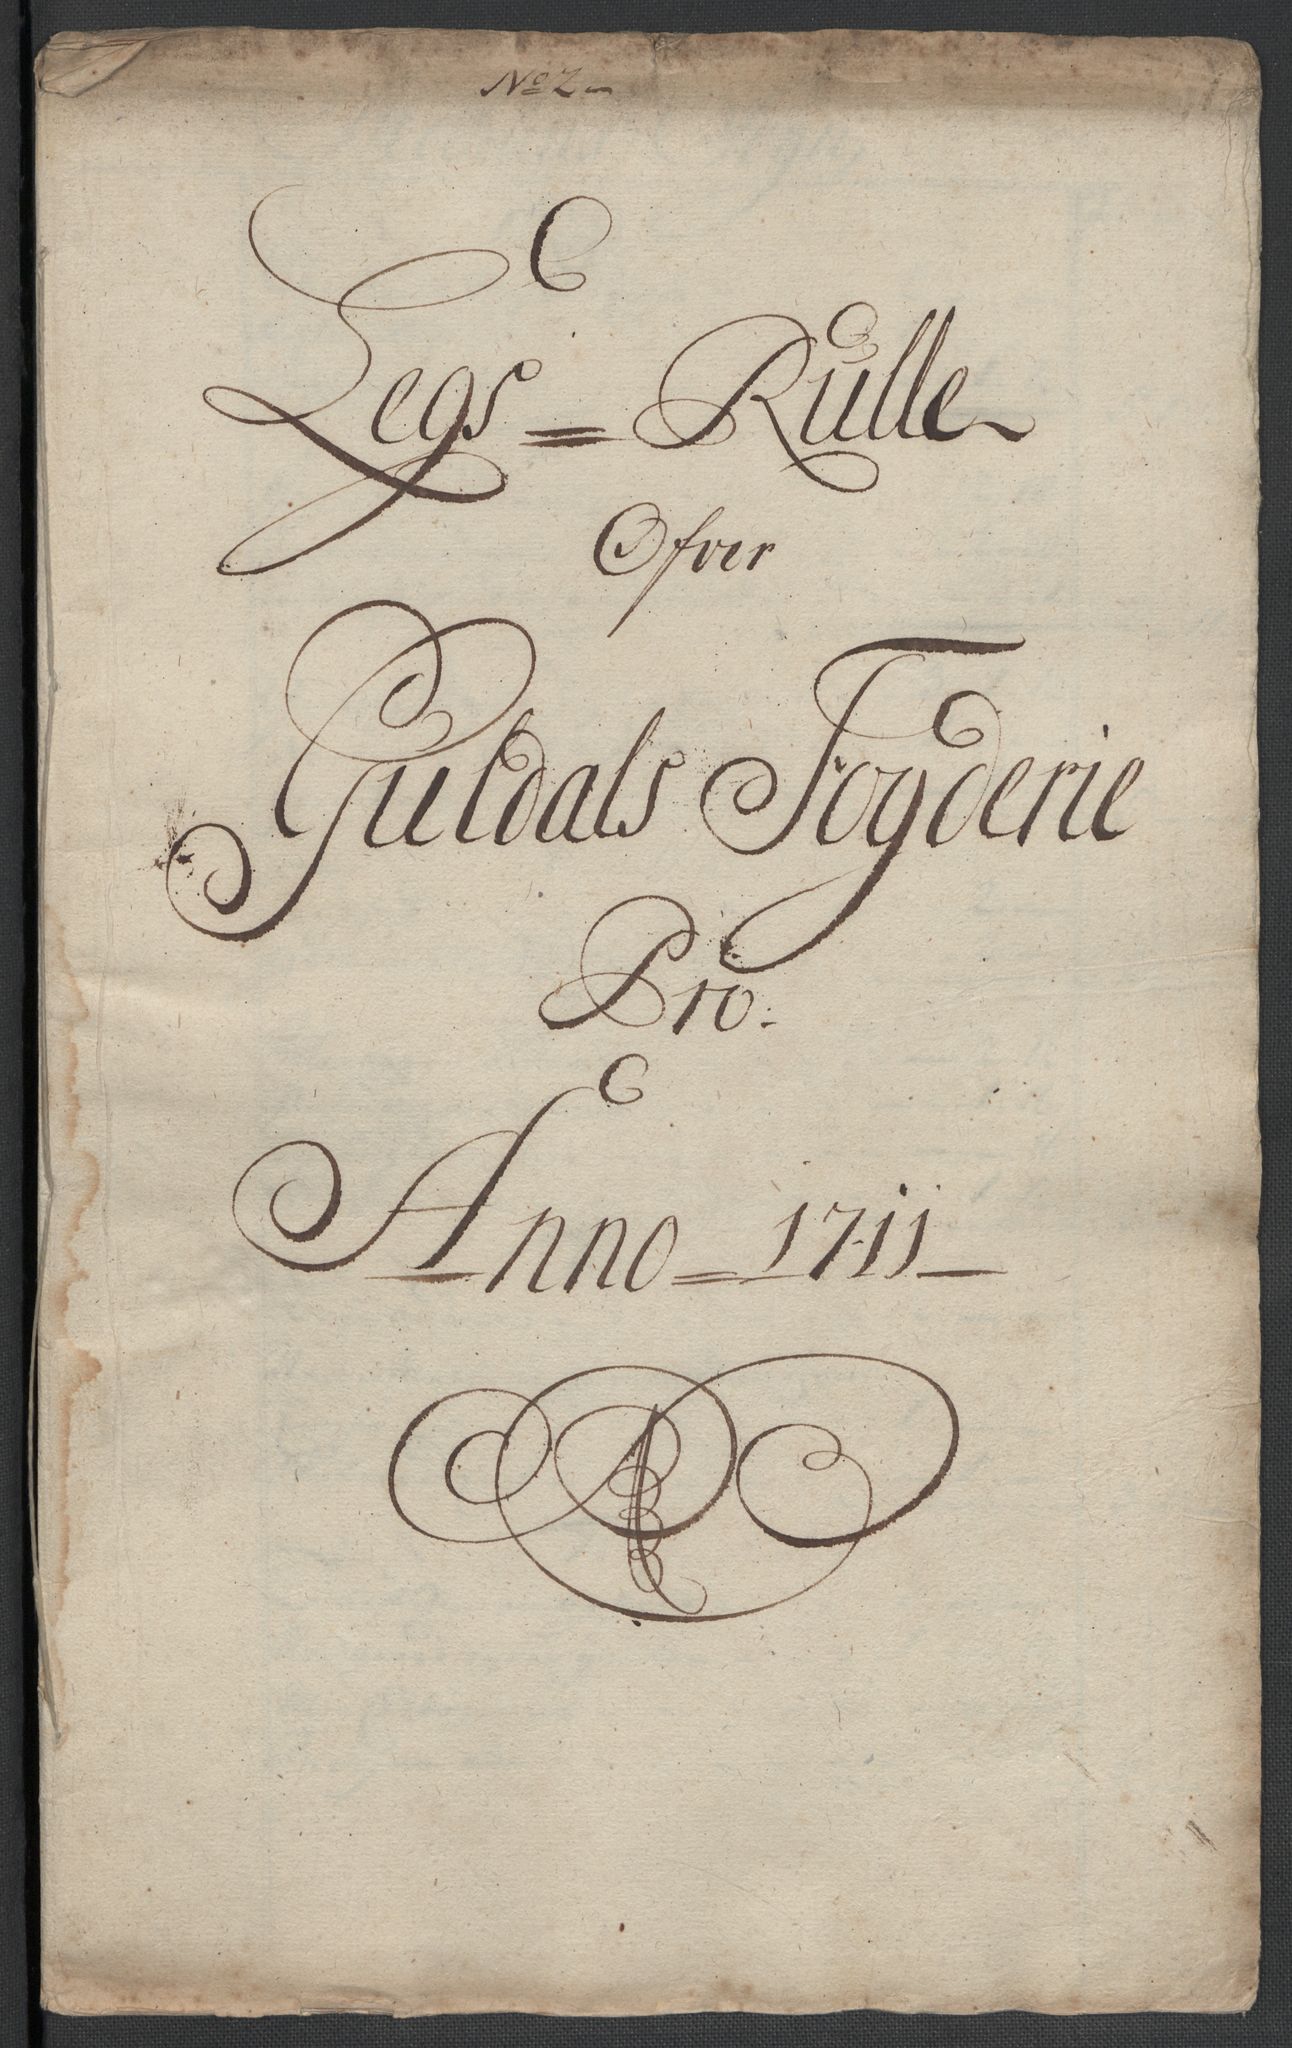 No 2
Legs = Rulle
Ofver
Guldals Fogderie
Pro.
Anno = 1711